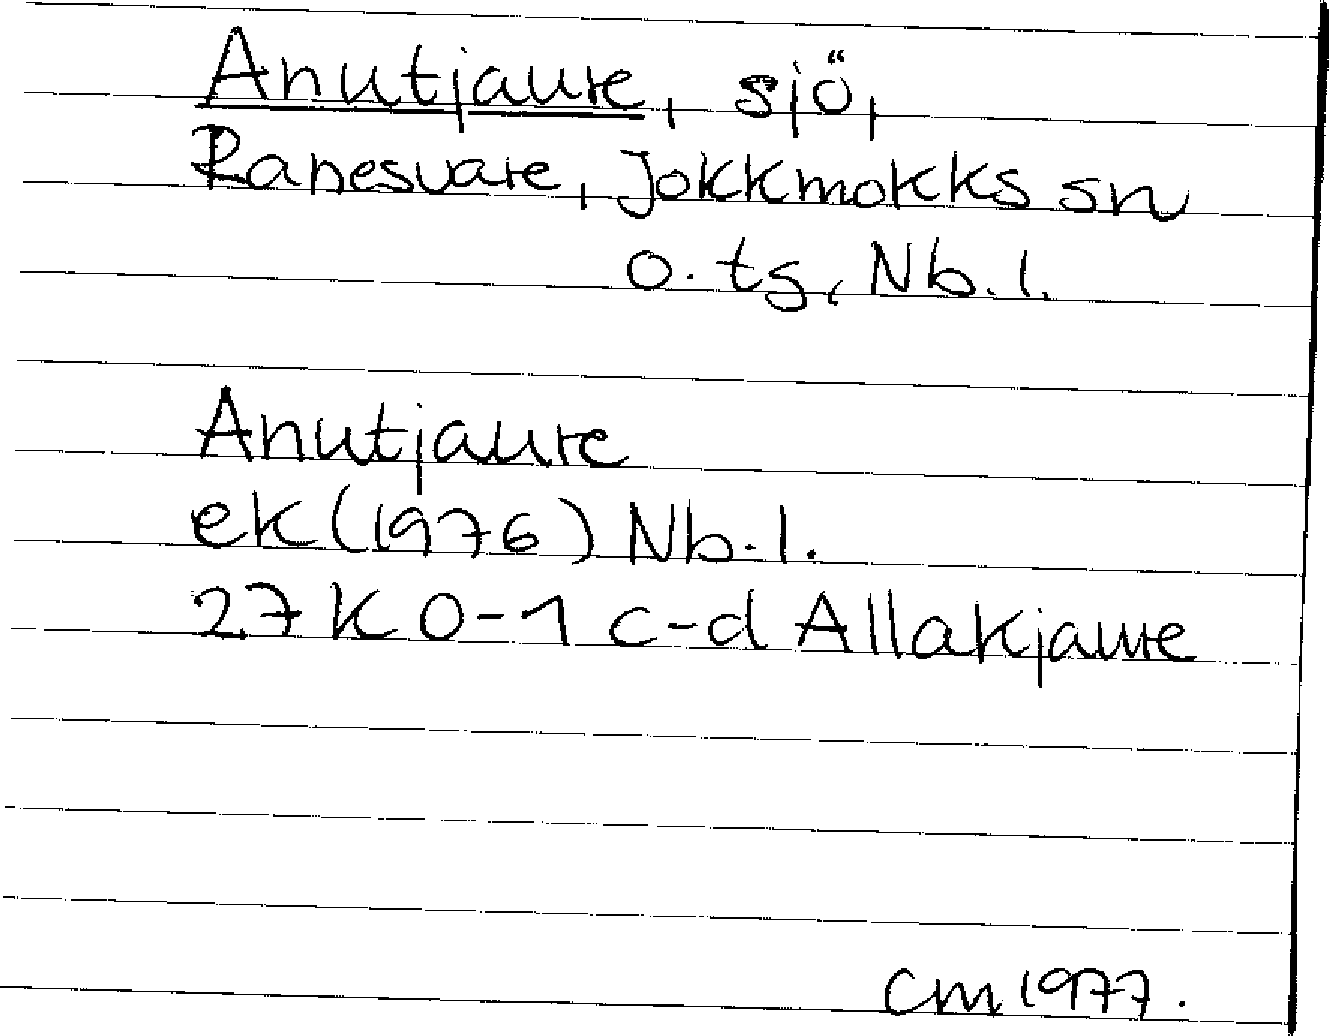 Anutjaure, sjö,
Ranesvare, Jokkmokks sn
o. tg, Nb. l.
Anutjaure
ek (1976) Nb. l.
27 K 0-1 c-d Allakjaure
CM 1977.